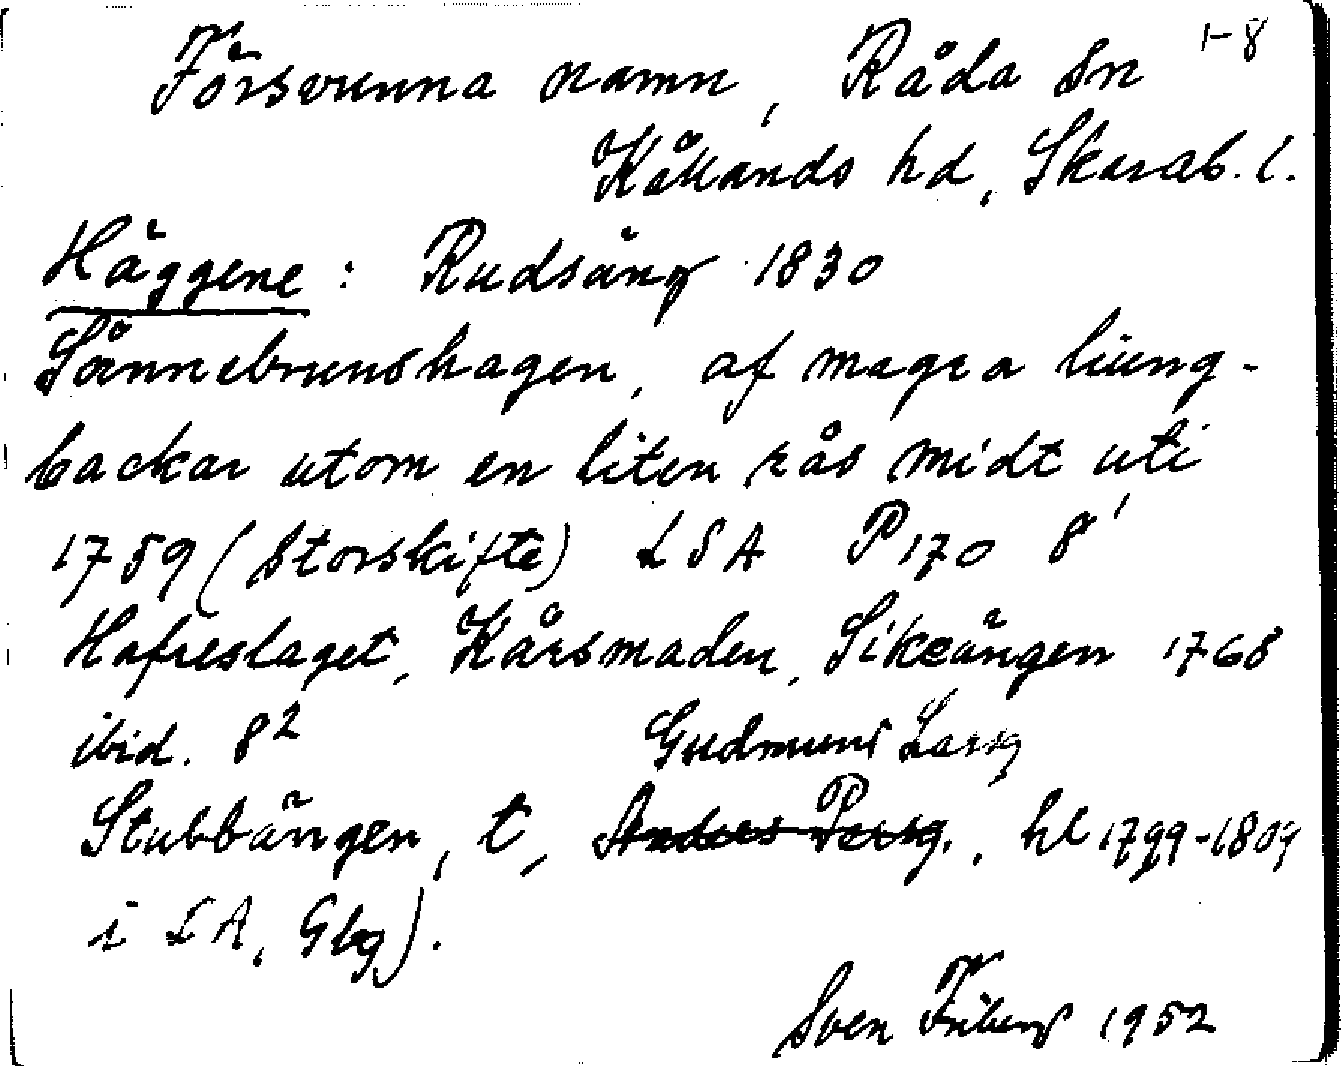 1-8
Försvunna namn, Råda Sn
Kållands hd, Skarab. l.
Häggene: Rudsäng 1830
Sånnebrunshagen, af magra liung-
backar utom en liten rås midt uti
1759 (Storskifte) LSA P 170 8¹
Hafreslaget, Kårsmaden, Sikeängen 1768
ibid. 8²
Gudmund Larsg
Stubbängen, t, Anders Persg., hl 1799-1809
i LA, Gbg).
Sven Friberg 1952